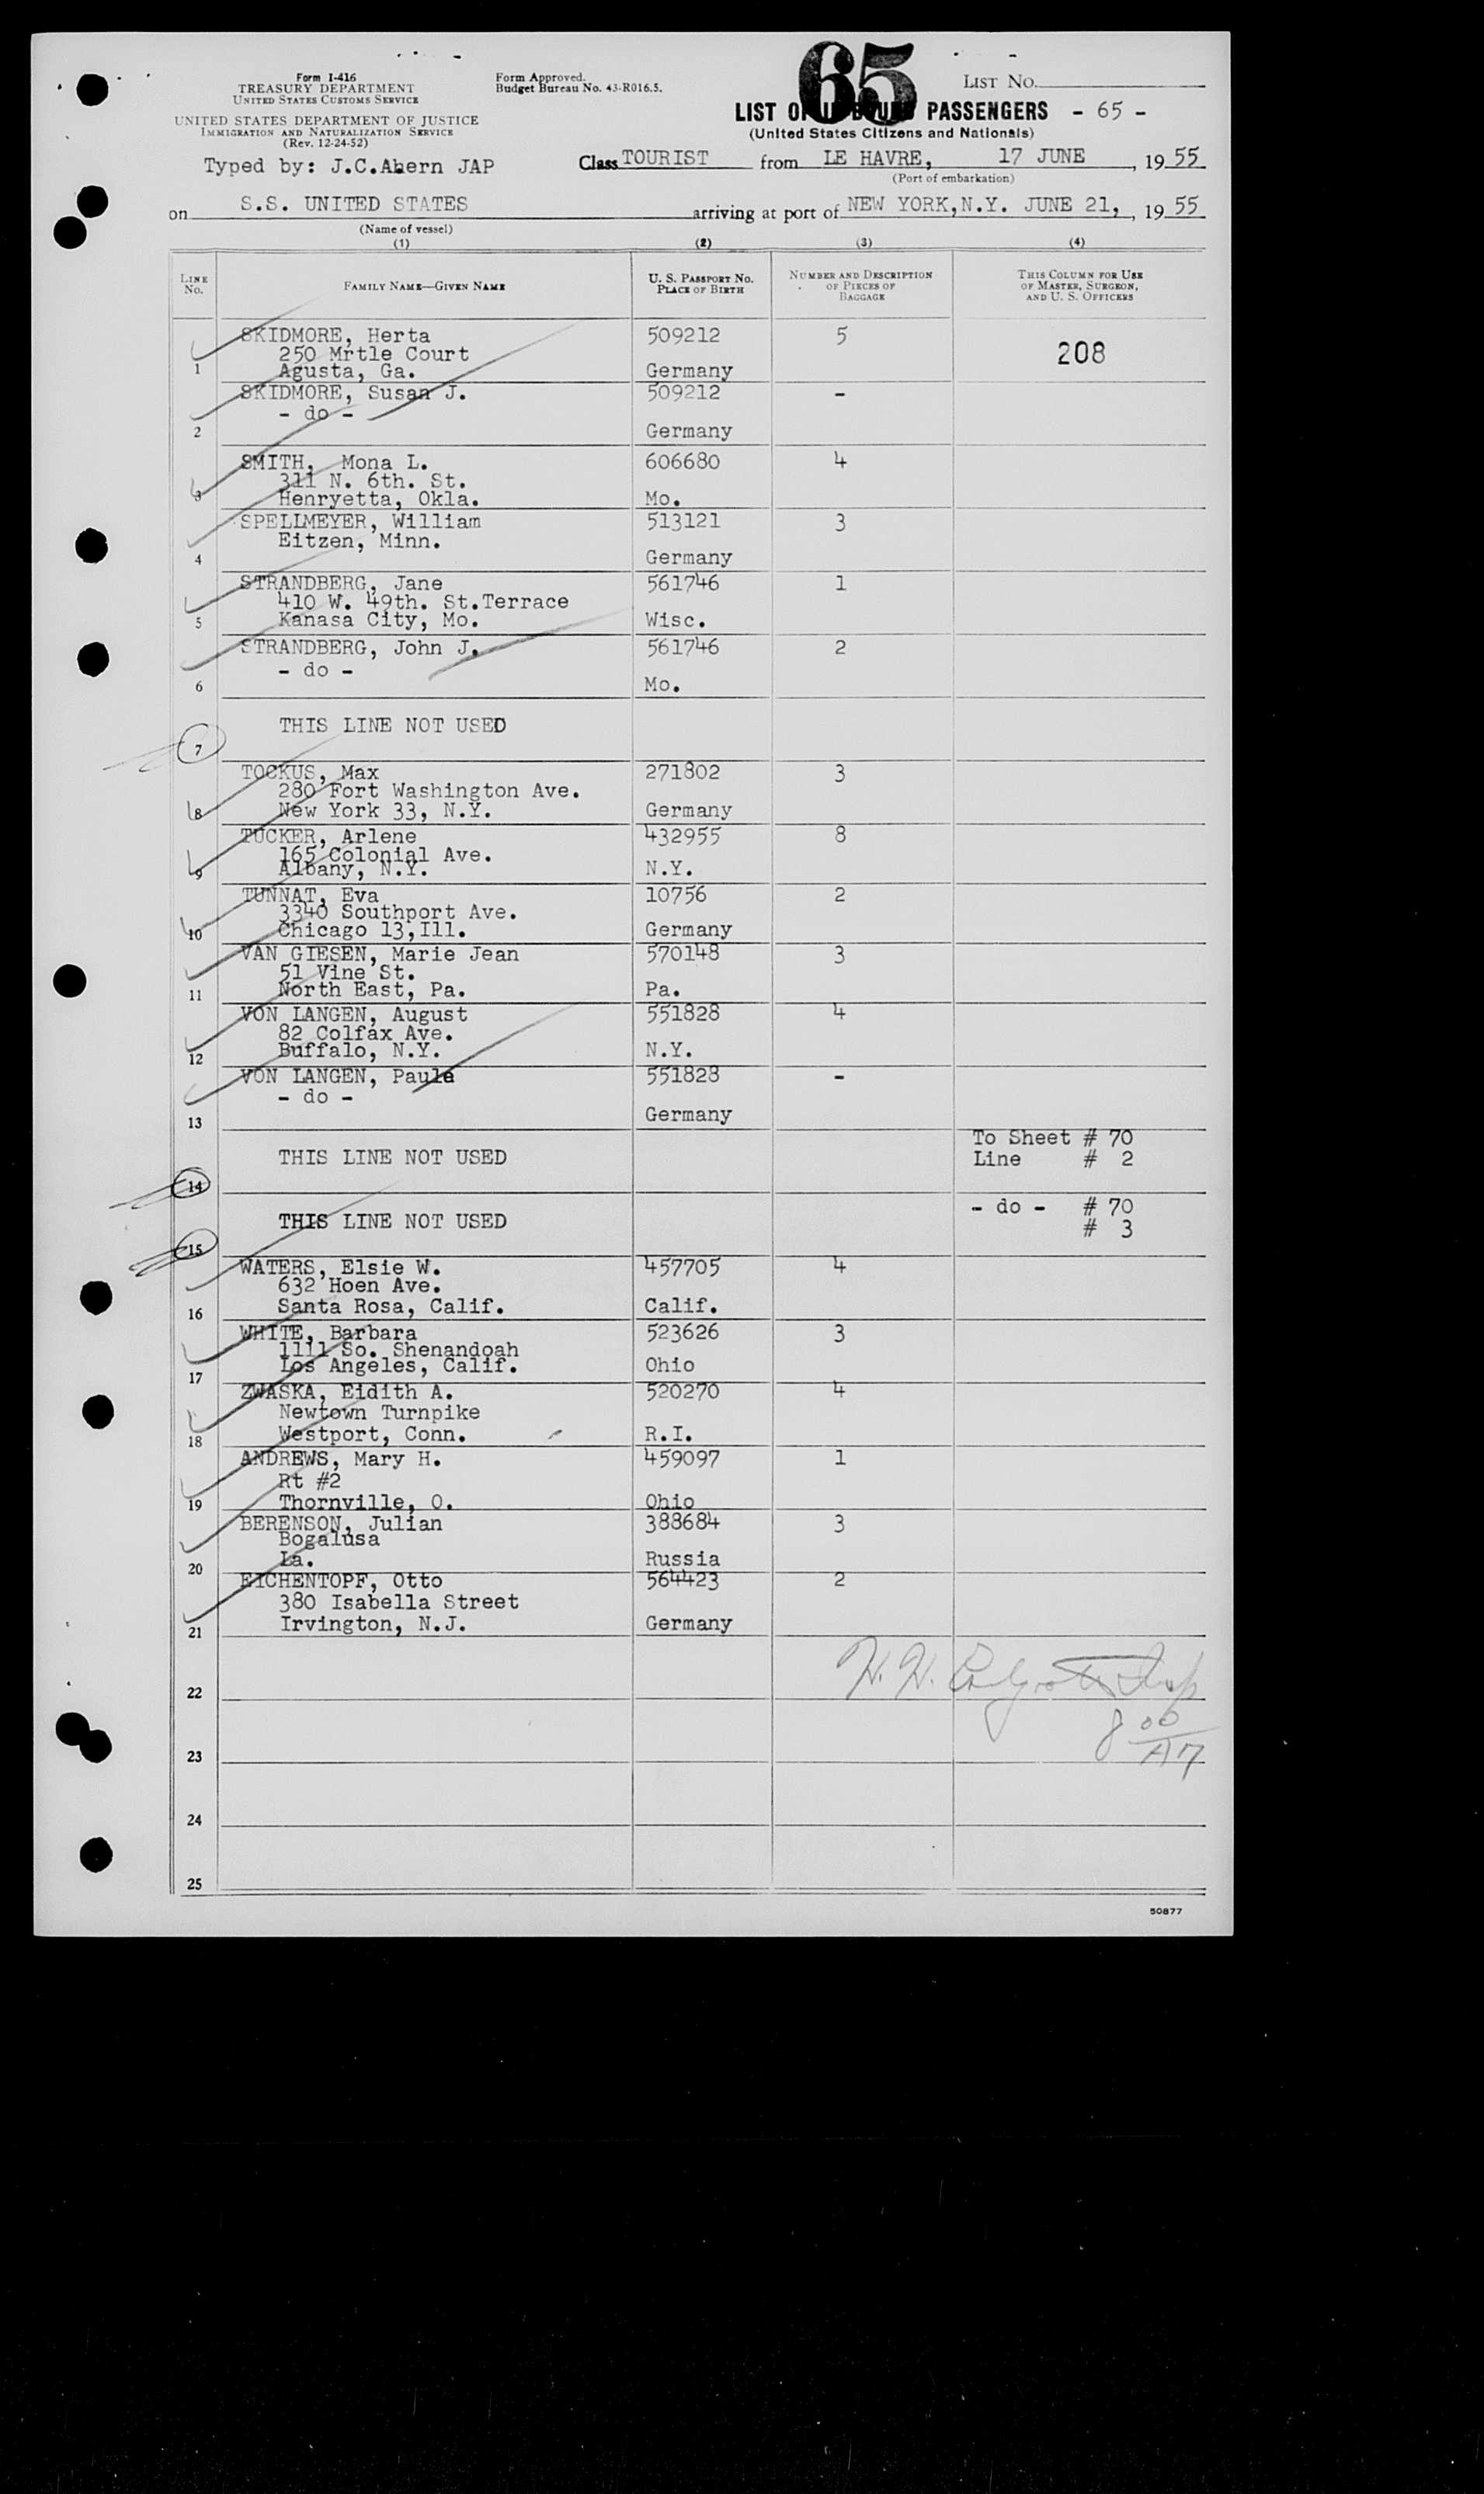 Form I-416
TREASURY DEPARTMENT
UNITED STATES CUSTOMS SERVICE
UNITED STATES DEPARTMENT OF JUSTICE
IMMIGRATION AND NATURALIZATION SERVICE
(Rev. 12-24-52)
Form Approved.
Budget Bureau No. 43-R016.5.
65
LIST NO.
LIST OF PASSENGERS - 65 -
(United States Citizens and Nationals)
Typed by: J.C.Ahern JAP
Class TOURIST from LE HAVRE, 17 JUNE, 1955
(Port of embarkation)
on S.S. UNITED STATES arriving at port of NEW YORK,N.Y. JUNE 21, , 1955
(Name of vessel)
(1) (2) (3) (4)
LINE NO. FAMILY NAME—GIVEN NAME U. S. PASSPORT NO. PLACE OF BIRTH NUMBER AND DESCRIPTION OF PIECES OF BAGGAGE THIS COLUMN FOR USE OF MASTER, SURGEON, AND U. S. OFFICERS
SKIDMORE, Herta 509212 5
250 Mrtle Court 208
1 Agusta, Ga. Germany
SKIDMORE, Susan J. 509212 -
- do -
2 Germany
SMITH, Mona L. 606680 4
311 N. 6th. St.
3 Henryetta, Okla. Mo.
SPELLMEYER, William 513121 3
Eitzen, Minn.
4 Germany
STRANDBERG, Jane 561746 1
410 W. 49th. St.Terrace
5 Kanasa City, Mo. Wisc.
STRANDBERG, John J. 561746 2
- do -
6 Mo.
THIS LINE NOT USED
7
TOCKUS, Max 271802 3
280 Fort Washington Ave.
8 New York 33, N.Y. Germany
TUCKER, Arlene 432955 8
165 Colonial Ave.
9 Albany, N.Y. N.Y.
TUNNAT, Eva 10756 2
3340 Southport Ave.
10 Chicago 13,Ill. Germany
VAN GIESEN, Marie Jean 570148 3
51 Vine St.
11 North East, Pa. Pa.
VON LANGEN, August 551828 4
82 Colfax Ave.
12 Buffalo, N.Y. N.Y.
VON LANGEN, Paula 551828 -
- do -
13 Germany
To Sheet # 70
THIS LINE NOT USED Line # 2
14
- do - # 70
THIS LINE NOT USED # 3
15
WATERS, Elsie W. 457705 4
632 Hoen Ave.
16 Santa Rosa, Calif. Calif.
WHITE, Barbara 523626 3
1111 So. Shenandoah
17 Los Angeles, Calif. Ohio
ZWASKA, Eidith A. 520270 4
Newtown Turnpike
18 Westport, Conn. R.I.
ANDREWS, Mary H. 459097 1
Rt #2
19 Thornville, O. Ohio
BERENSON, Julian 388684 3
Bogalusa
20 La. Russia
EICHENTOPF, Otto 564423 2
380 Isabella Street
21 Irvington, N.J. Germany
22
8 00
23
24
25
50877